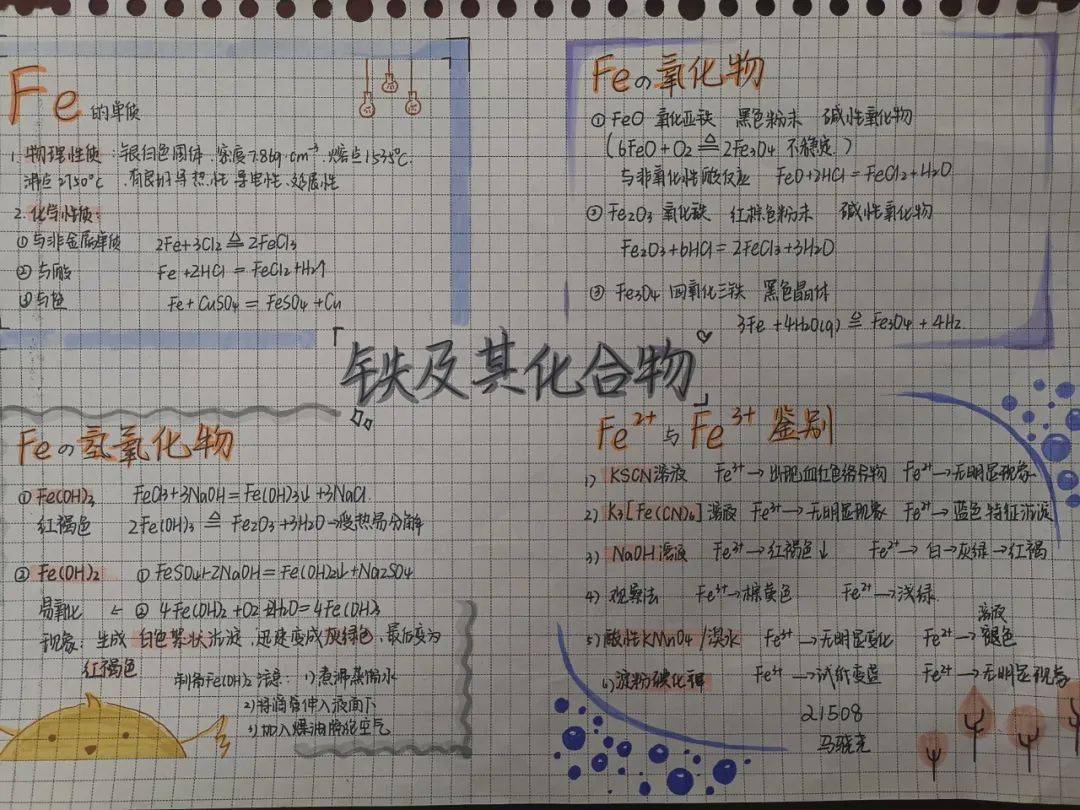 铁及其化合物
Fe的单质
1. 物理性质：银白色固体、密度7.86g·cm⁻³、熔点1535℃、
沸点2750℃、有良好导热性、导电性、延展性
2. 化学性质：
①与非金属单质 2Fe+3Cl2 ≙ 2FeCl3
②与酸 Fe+2HCl=FeCl2+H2↑
③与盐 Fe+CuSO4=FeSO4+Cu
Feの氧化物
① FeO 氧化亚铁 黑色粉末 碱性氧化物
(6FeO+O2 ≙ 2Fe3O4 不稳定)
与非氧化性酸反应 FeO+2HCl=FeCl2+H2O
② Fe2O3 氧化铁 红棕色粉末 碱性氧化物
Fe2O3+6HCl=2FeCl3+3H2O
③ Fe3O4 四氧化三铁 黑色晶体
3Fe+4H2O(g) ≙ Fe3O4+4H2.
Feの氢氧化物
① Fe(OH)3 FeCl3+3NaOH=Fe(OH)3↓+3NaCl
红褐色 2Fe(OH)3 ≙ Fe2O3+3H2O→受热易分解
② Fe(OH)2 ① FeSO4+2NaOH=Fe(OH)2↓+Na2SO4
易氧化 ← ② 4Fe(OH)2+O2+2H2O=4Fe(OH)3
现象：生成白色絮状沉淀，迅速变成灰绿色，最后变为
红褐色
制备Fe(OH)2注意：1)煮沸蒸馏水
2)将滴管伸入液面下
3)加入煤油隔绝空气
Fe²⁺与Fe³⁺鉴别
1) KSCN溶液 Fe³⁺→出现血红色络合物 Fe²⁺→无明显现象
2) K3[Fe(CN)6]溶液 Fe³⁺→无明显现象 Fe²⁺→蓝色特征沉淀
3) NaOH溶液 Fe³⁺→红褐色↓ Fe²⁺→白→灰绿→红褐
4) 观察法 Fe³⁺→棕黄色 Fe²⁺→浅绿
5) 酸性KMnO4/溴水 Fe³⁺→无明显变化 Fe²⁺→溶液褪色
6) 淀粉碘化钾 Fe³⁺→试纸变蓝 Fe²⁺→无明显现象
21508